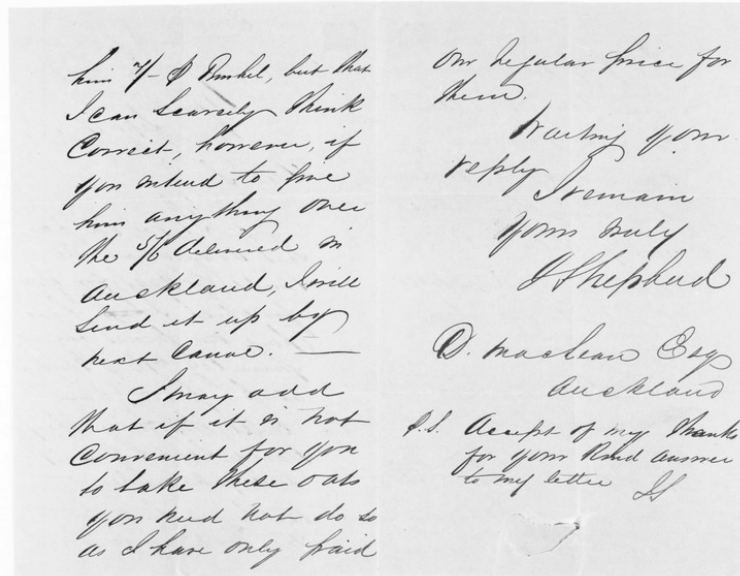 him 7/- ⅌ Bushel, but that
I can scarcely think
Correct, however, if
you intend to give
him anything over
the 5/6 delivered in
Auckland, I will
Send it up by
next Canoe. —
I may add
that if it is not
Convenient for you
to take these oats
you need not do so
as I have only paid
our regular price for
them.
Waiting your
reply
I remain
Yours truly
J Shepherd
D. MacLean Esq
Auckland
P.S. Accept of my thanks
for your kind answer
to my letter JS